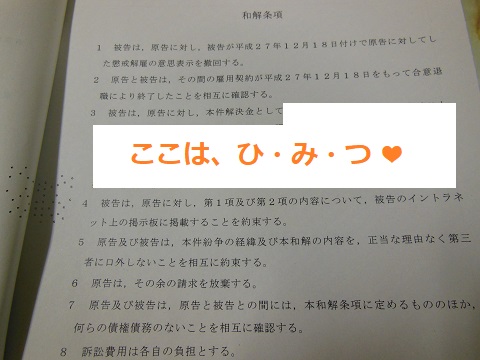 和解条項
1 被告は，原告に対し，被告が平成２７年１２月１８日付けで原告に対してし
た懲戒解雇の意思表示を撤回する。
2 原告と被告は，その間の雇用契約が平成２７年１２月１８日をもって合意退
職により終了したことを相互に確認する。
3 被告は，原告に対し，本件解決金として
ここは、ひ・み・つ ♥
4 被告は，原告に対し，第１項及び第２項の内容について，被告のイントラネ
ット上の掲示板に掲載することを約束する。
5 原告及び被告は，本件紛争の経緯及び本和解の内容を，正当な理由なく第三
者に口外しないことを相互に約束する。
6 原告は，その余の請求を放棄する。
7 原告及び被告は，原告と被告との間には，本和解条項に定めるもののほか，
何らの債権債務のないことを相互に確認する。
8 訴訟費用は各自の負担とする。